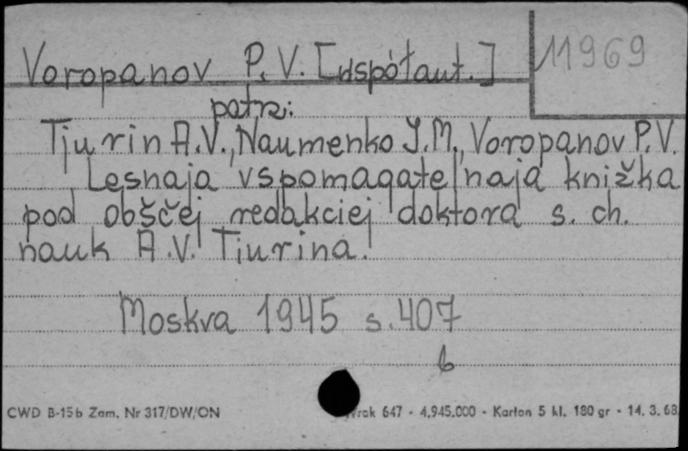 Voropanov P. V. [współaut.]
11969
patrz:
Tjurin A.V., Naumenko I.M., Voropanov P.V.
Lesnaja vspomagatel'naja knižka
pod obščej redakciej doktora s. ch.
nauk A.V. Tjurina.
Moskva 1945 s. 407
b
CWD B-15b Zam. Nr 317/DW/ON
647 - 4.945.000 - Karton 5 kl. 180 gr - 14. 3. 68